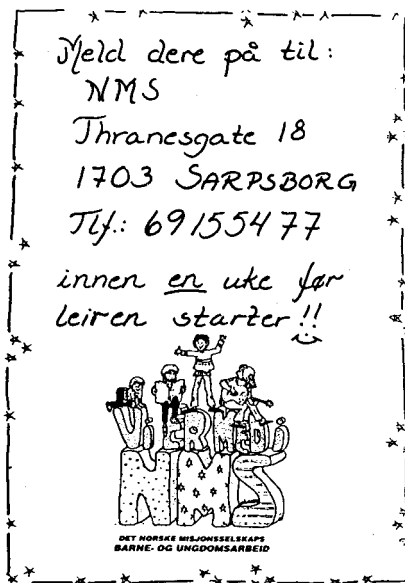 Meld dere på til:
NMS
Thranesgate 18
1703 SARPSBORG
Tlf.: 69155477
innen en uke før
leiren starter!!
VI ER MED I
NMS
DET NORSKE MISJONSSELSKAPS
BARNE- OG UNGDOMSARBEID